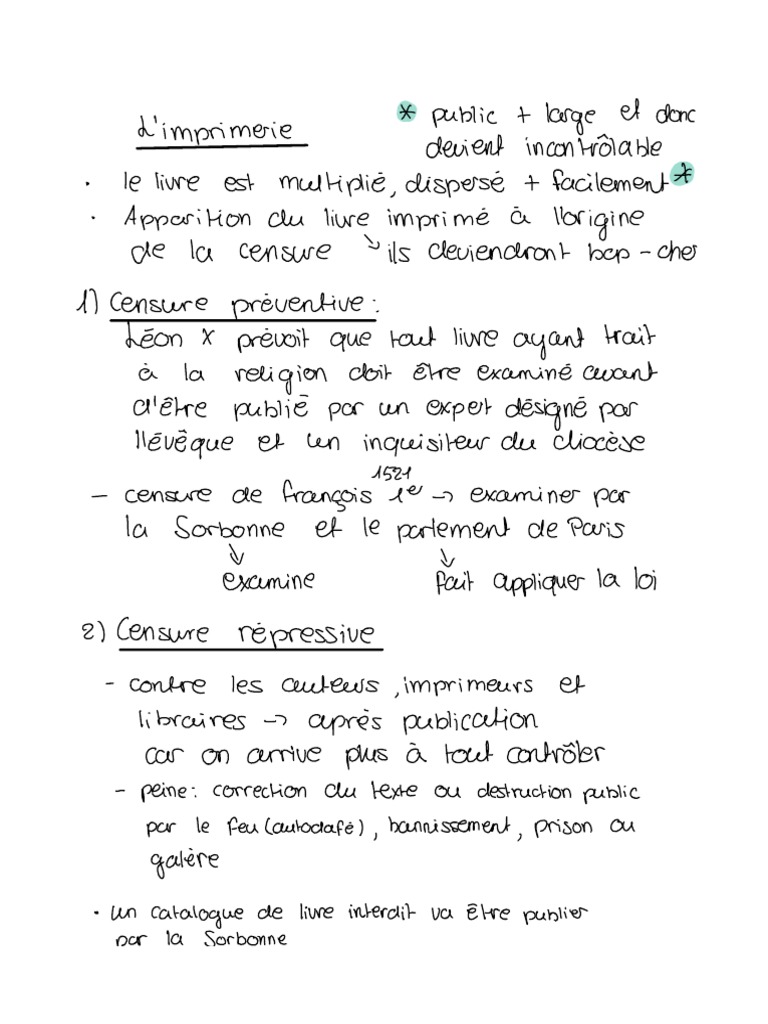 L'imprimerie
* public + large et donc
devient incontrôlable
· le livre est multiplié, dispersé + facilement *
· Apparition du livre imprimé à l'origine
de la censure ↘ ils deviendront bcp - cher
1) Censure préventive :
Léon X prévoit que tout livre ayant trait
à la religion doit être examiné avant
d'être publié par un expert désigné par
l'évêque et un inquisiteur du diocèse
1521
- censure de françois 1er → examiner par
la Sorbonne et le parlement de Paris
↓ ↓
examine fait appliquer la loi
2) Censure répressive
- contre les auteurs, imprimeurs et
libraires → après publication
car on arrive plus à tout contrôler
- peine : correction du texte ou destruction public
par le feu (autodafé), bannissement, prison ou
galère
· un catalogue de livre interdit va être publier
par la Sorbonne